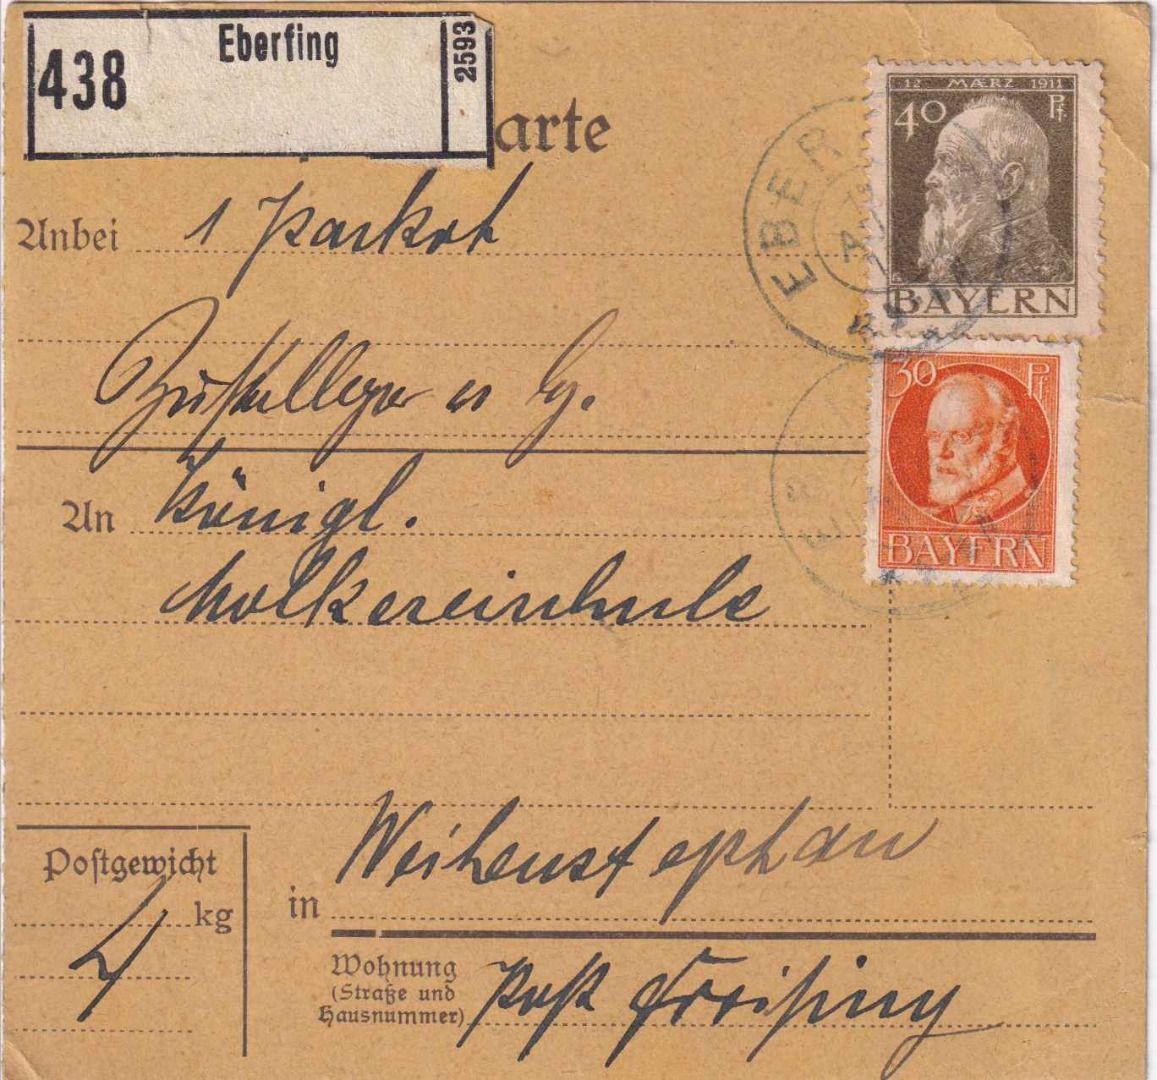 438 Eberfing 2593
arte
12 MÆRZ 1911
40 Pf.
BAYERN
EBER
Anbei 1 Parket
30 Pf
BAYERN
An Königl.
Molkereischule
Postgewicht
kg
4
in Weihenstephan
Wohnung
(Straße und
Hausnummer) Post Freising